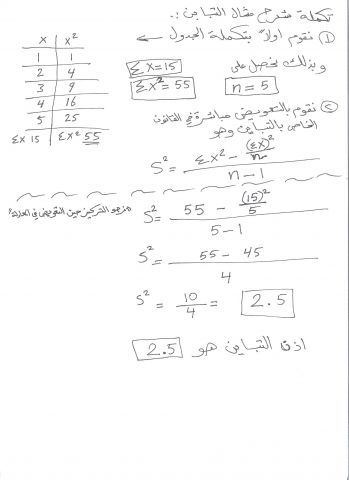 تكملة شرح مثال التباين :.
① نقوم اولاً بتكملة الجدول
X X²
1 1
2 4
3 9
4 16
5 25
ΣX 15 ΣX² 55
وبذلك نحصل على
ΣX=15
ΣX²=55
n=5
② نقوم بالتعويض مباشرة في القانون
الخاص بالتباين وهو
S² = (ΣX² - (ΣX)²/n) / (n-1)
التركيز حين التعويض في
S² = (55 - (15)²/5) / (5-1)
S² = (55 - 45) / 4
S² = 10/4 = 2.5
اذن التباين هو 2.5